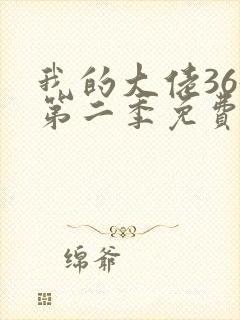 我的大佬36
第二季免費
绵爷